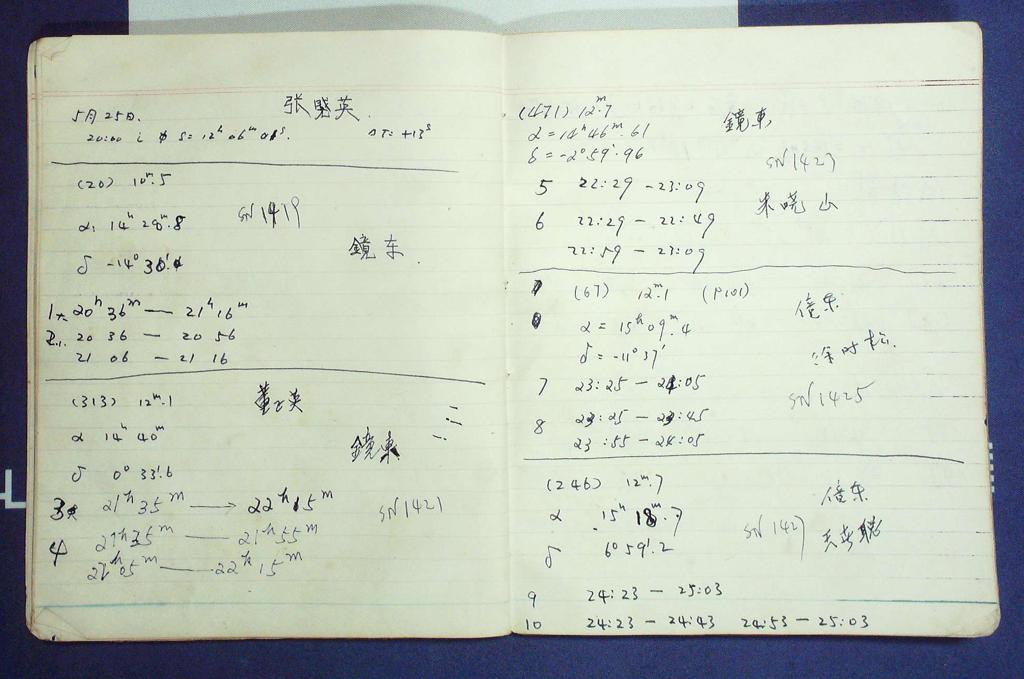 张 英
5月25日.
20:00 S=12ʰ 06ᵐ ΔT: +13ˢ
(20) 10ᵐ.5
SN 1419
α: 14ʰ 28ᵐ.8
鏡东
δ -14°
1 20ʰ 36ᵐ — 21ʰ 16ᵐ
2 20 36 — 20 56
21 06 — 21 16
(313) 12ᵐ.1
α 14ʰ 40ᵐ
鏡東
δ 0° 33′.6
3 21ʰ 35ᵐ → 22ʰ 15ᵐ
SN 1421
4 21ʰ 35ᵐ — 21ʰ 55ᵐ
22ʰ 05ᵐ — 22ʰ 15ᵐ
(471) 12ᵐ.7
鏡東
α=14ʰ46ᵐ.61
δ=-2°59′.96
SN 1423
5 22:29 - 23:09
朱晓山
6 22:29 - 22:49
22:59 - 23:09
(67) 12ᵐ.1 (P101)
α = 15ʰ 09ᵐ.4
δ = -11° 37′
涂时松.
7 23:25 - 24:05
SN 1425
8 23:25 - 23:45
23:55 - 24:05
(246) 12ᵐ.7
α 15ʰ 18ᵐ.7
SN 1427
δ 6° 59′.2
9 24:23 - 25:03
10 24:23 - 24:43 24:53 - 25:03